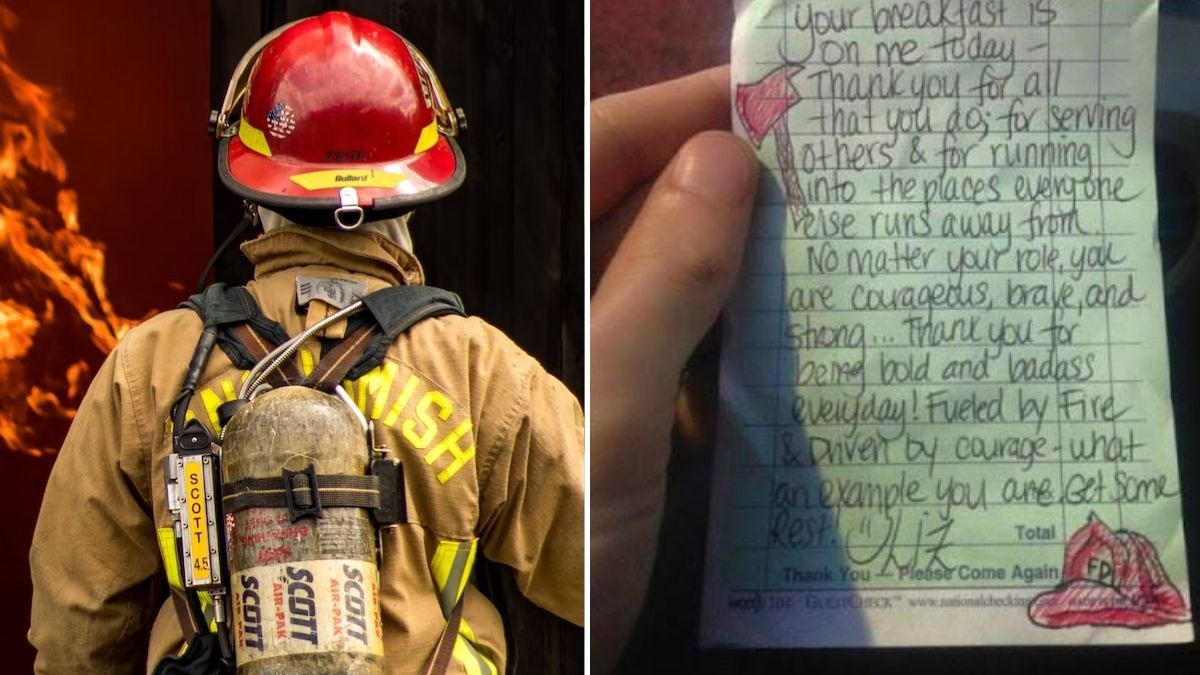 ZEHR
Bullard
MISH
SCOTT
4.5
SCOTT
AIR-PAK
SCOTT
AIR-PAK
SCOTT
your breakfast is
on me today –
Thank you for all
that you do; for serving
others & for running
into the places everyone
else runs away from
No matter your role, you
are courageous, brave, and
strong... Thank you for
being bold and badass
everyday! Fueled by Fire
& Driven by courage - what
an example you are. Get Some
Rest. Liz
Total
FD
Thank You — Please Come Again
104 GUESTCHECK™ www.nationalchecking